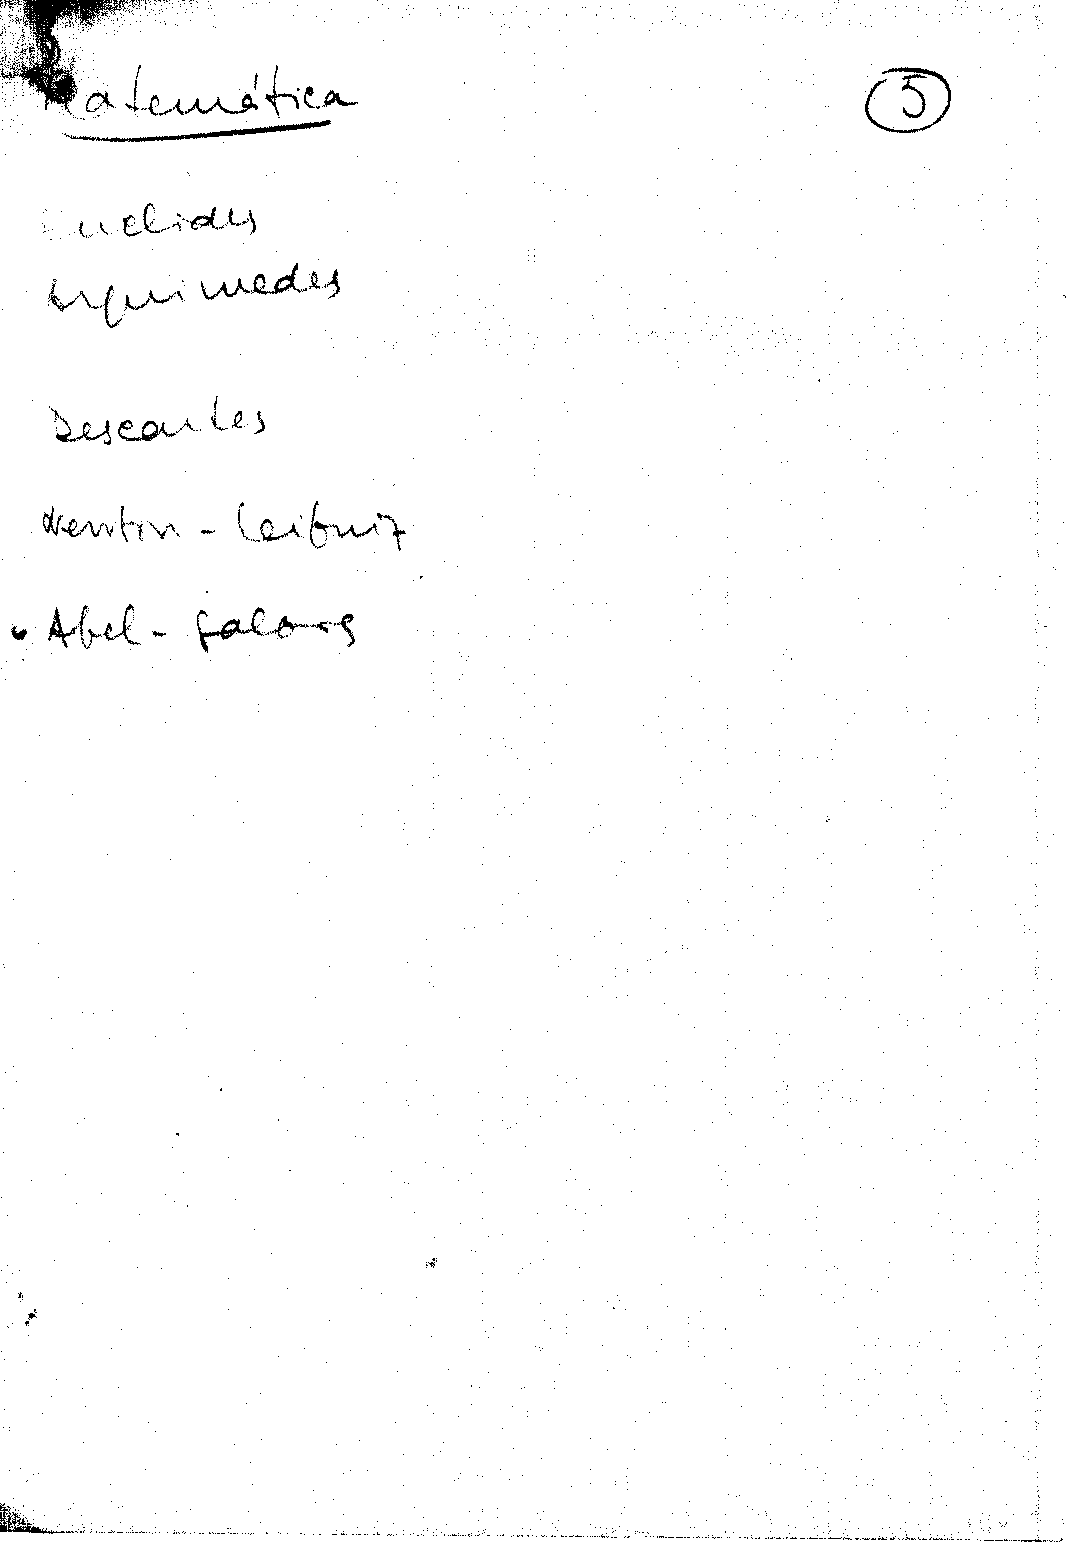 Matemática
5
Euclides
Arquimedes
Descartes
Newton - Leibniz
• Abel - Galois